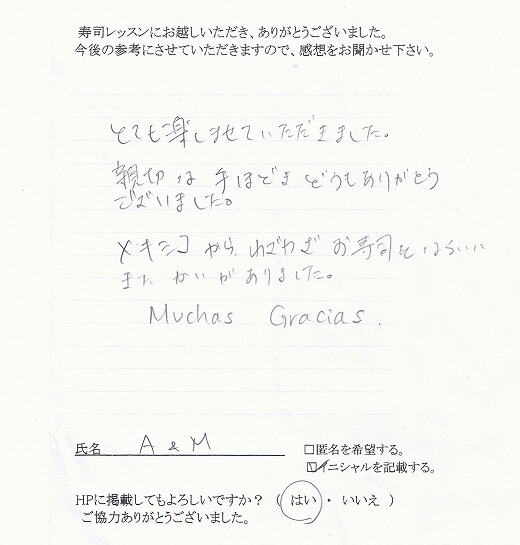 寿司レッスンにお越しいただき、ありがとうございました。
今後の参考にさせていただきますので、感想をお聞かせ下さい。
とても楽しませていただきました。
親切な手ほどきどうもありがとう
ございました。
メキシコからわざわざお寿司をならいに
きたかいがありました。
Muchas Gracias.
氏名 A & M
□匿名を希望する。
☑イニシャルを記載する。
HPに掲載してもよろしいですか? ( はい ・ いいえ )
ご協力ありがとうございました。